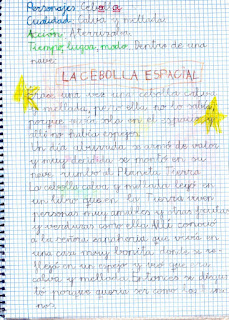 Personajes: Cebolla
Cualidad: Calva y mellada
Acción: Aterrizaba
Tiempo, lugar, modo: Dentro de una
nave.
LA CEBOLLA ESPACIAL
Érase una vez una cebolla calva
y mellada, pero ella no lo sabía
porque vivía sola en el espacio y
allí no había espejos.
Un día aburrida se armó de valor
y muy decidida se montó en su
nave rumbo al Planeta Tierra.
La cebolla calva y mellada leyó en
un libro que en la Tierra viven
personas muy amables y otras frutas
y verduras como ella. Allí conoció
a la señora zanahoria que vivía en
una casa muy bonita, donde se re-
flejó en un espejo y vio que era
calva y mellada. Entonces se
to porque quería ser como los
nos.